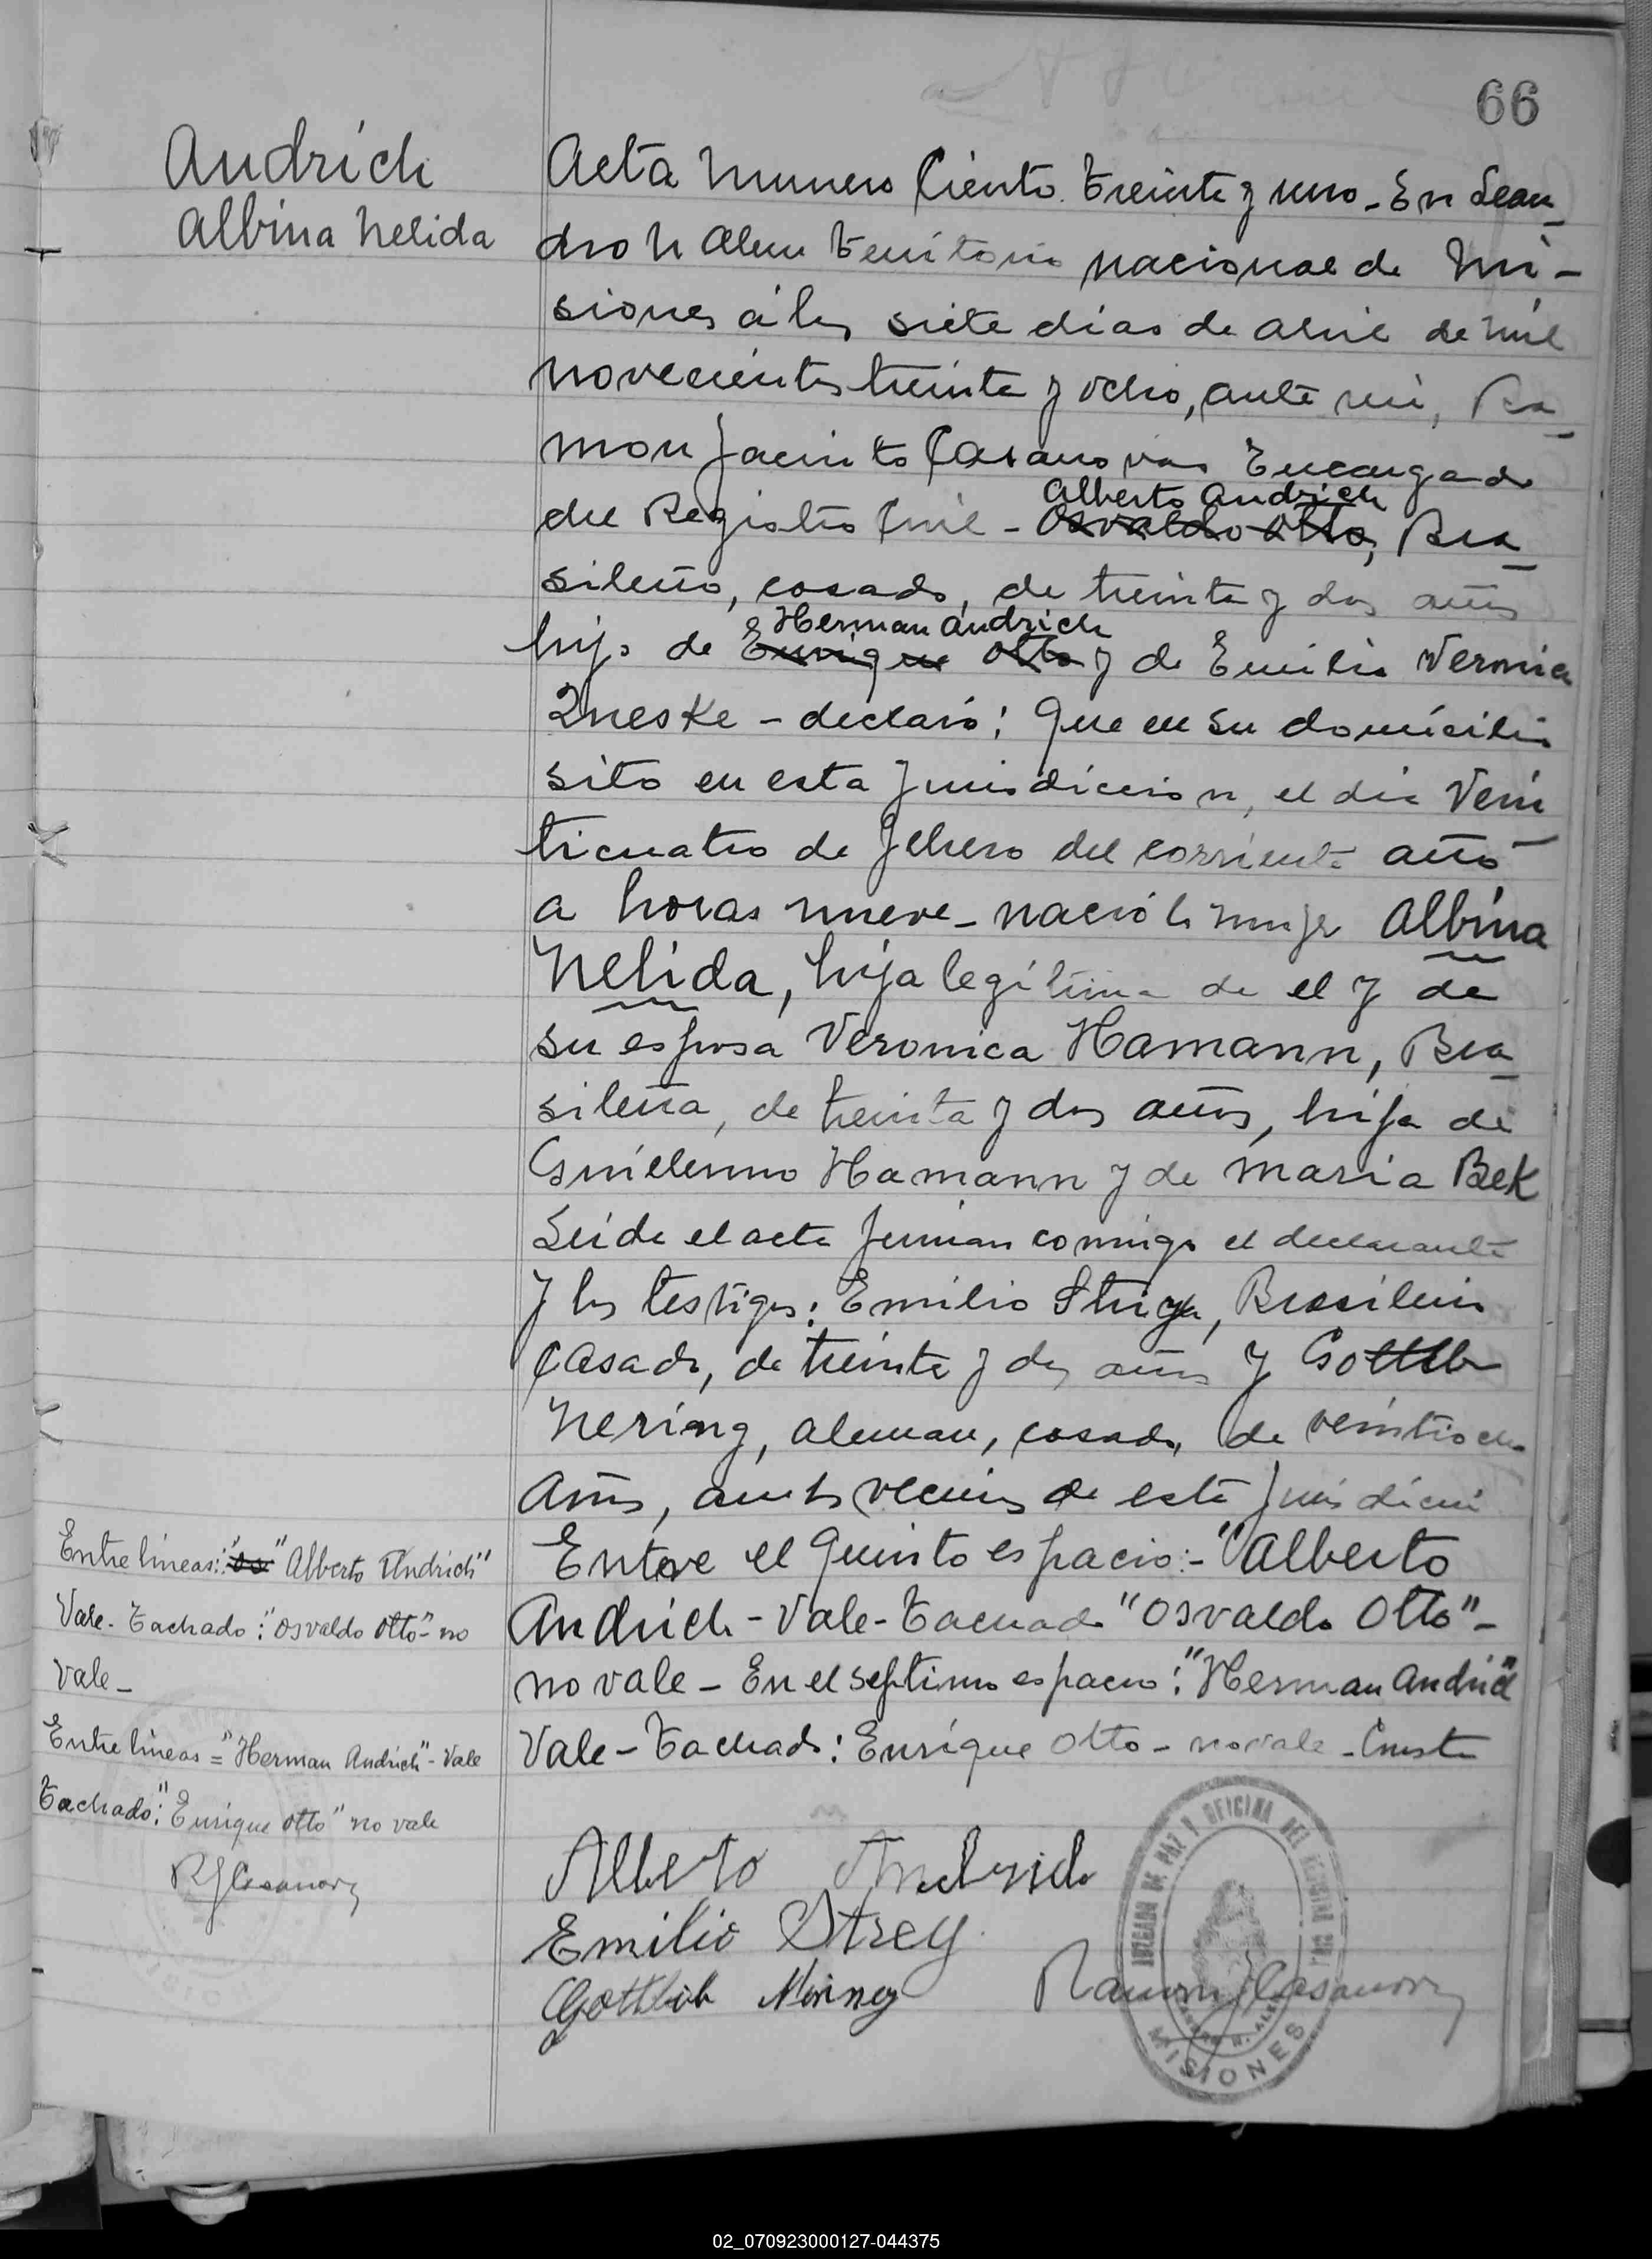 66
Andrich
Albina Nelida
Acta Numero Ciento treinta y uno - En Lean-
dro N Alem Territorio nacional de Mi-
siones á los siete dias de abril de mil
novecientos treinta y ocho, ante mi, Ra-
mon Jacinto Casanovas Encargado
Alberto Andrich
del Registro Civil - Osvaldo Otto, Bra-
sileño, casado, de treinta y dos años
Herman Andrich
hijo de Enrique Otto y de Emilia Veronica
- declaró: Que en su domicilio
sito en esta Jurisdiccion, el dia Vein
ticuatro de febrero del corriente año
a horas nueve - nació la mujer Albina
Nelida, hija legitima de el y de
su esposa Veronica Hamann, Bra-
sileña, de treinta y dos años, hija de
Guillermo Hamann y de Maria Bek
Leida el acta firman conmigo el declarante
y los testigos: Emilio Brasileño
casado, de treinta y dos años y Gottlb
Nering, aleman, casado, de veintiocho
años, ambos vecinos de esta
Entre el Quinto espacio:- "Alberto
Andrich - Vale - Tachado "Osvaldo Otto" -
no vale - En el septimo espacio: "Herman Andrich"
Vale - Tachado: Enrique Otto - no vale - Conste
Entre lineas: "Alberto Andrich"
Vale - Tachado: "Osvaldo Otto" - no
vale -
Entre lineas = "Herman Andrich" - Vale
Tachado: "Enrique Otto" no vale
RJCasanovas
Alberto Andrich
Emilio Strey
Gottlieb Nering
Ramon JCasanovas
JUZGADO DE PAZ Y OFICINA DEL REGISTRO CIVIL
LEANDRO N. ALEM
MISIONES
02_070923000127-044375